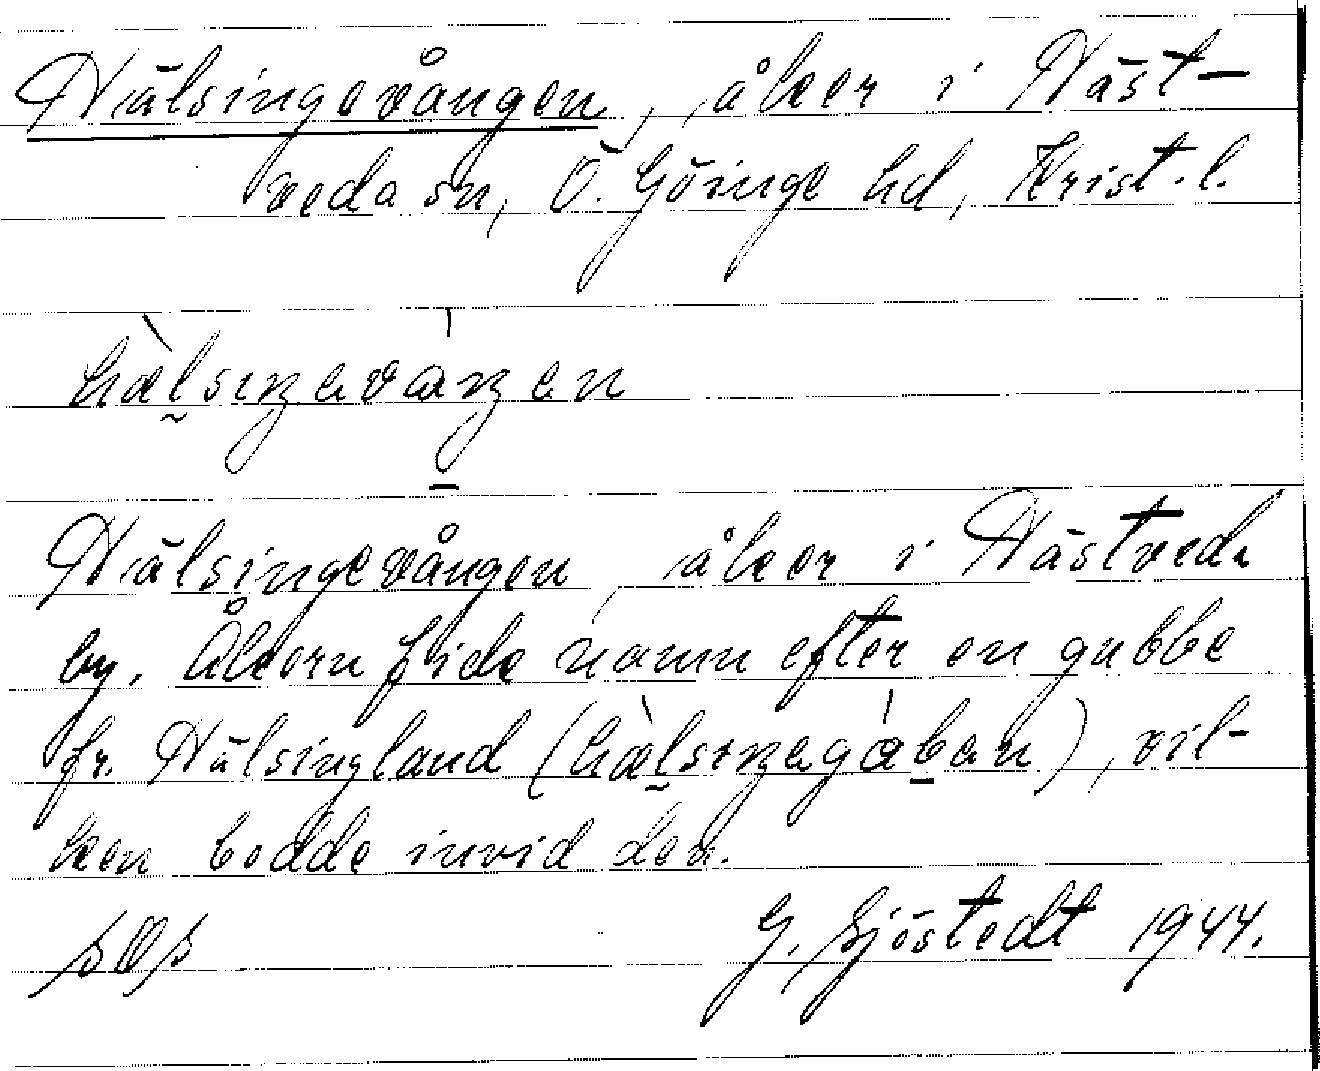 Hälsingevången, åker i Häst-
veda sn, Ö. Göinge hd, Krist. l.
hälsiŋavåŋen
Hälsingevången, åker i Hästveda
by. Åkern fick namn efter en gubbe
fr. Hälsingland (hælsiŋagåban), vil-
ken bodde invid den.
G. Sjöstedt 1944.